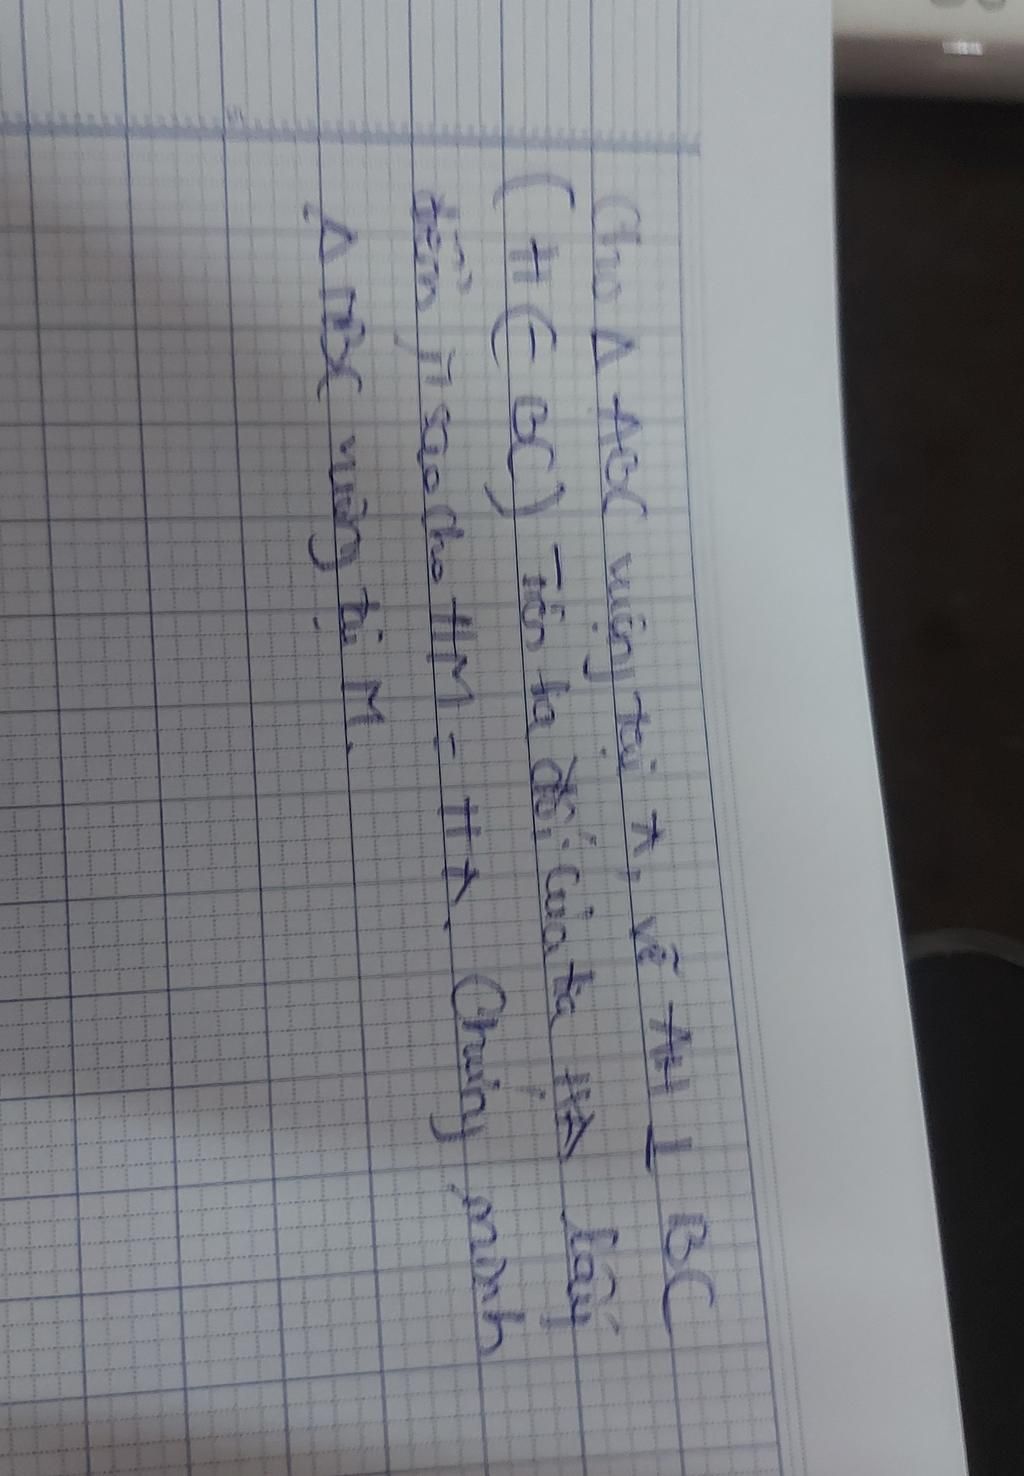 Cho Δ ABC vuông tại A, vẽ AH ⊥ BC
(H ∈ BC) Trên tia đối của tia HA lấy
điểm M sao cho HM = HA. Chứng minh
Δ MBC vuông tại M.